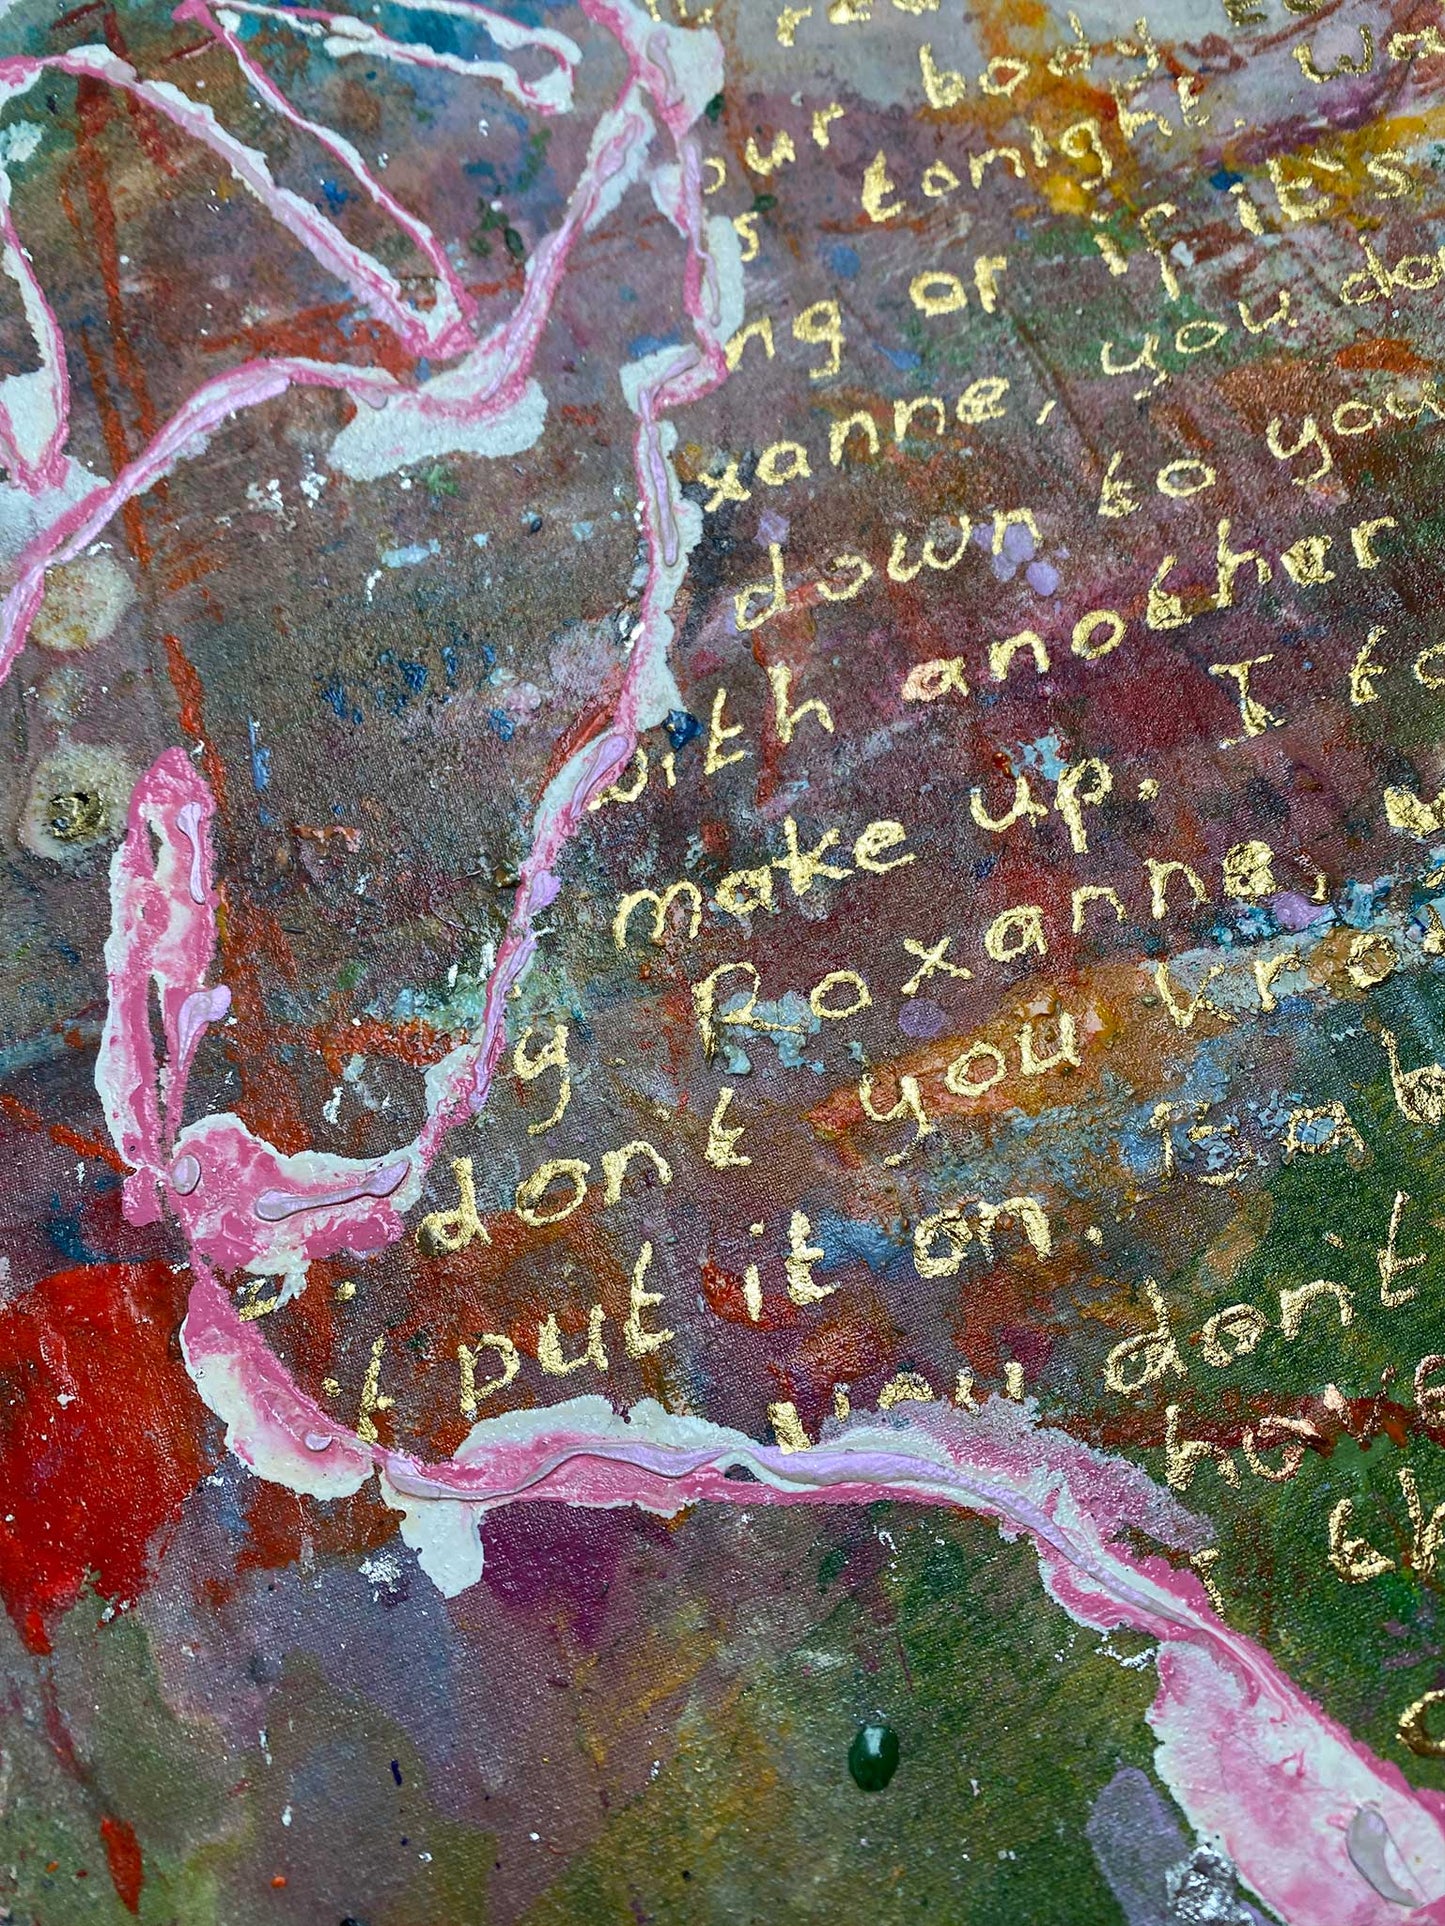 red
our body
s tonight.
ng or if it's
xanne, you don
down to you
with another
make up. I to
g Roxanne,
dont you know
put it on. is a b
you don't
have